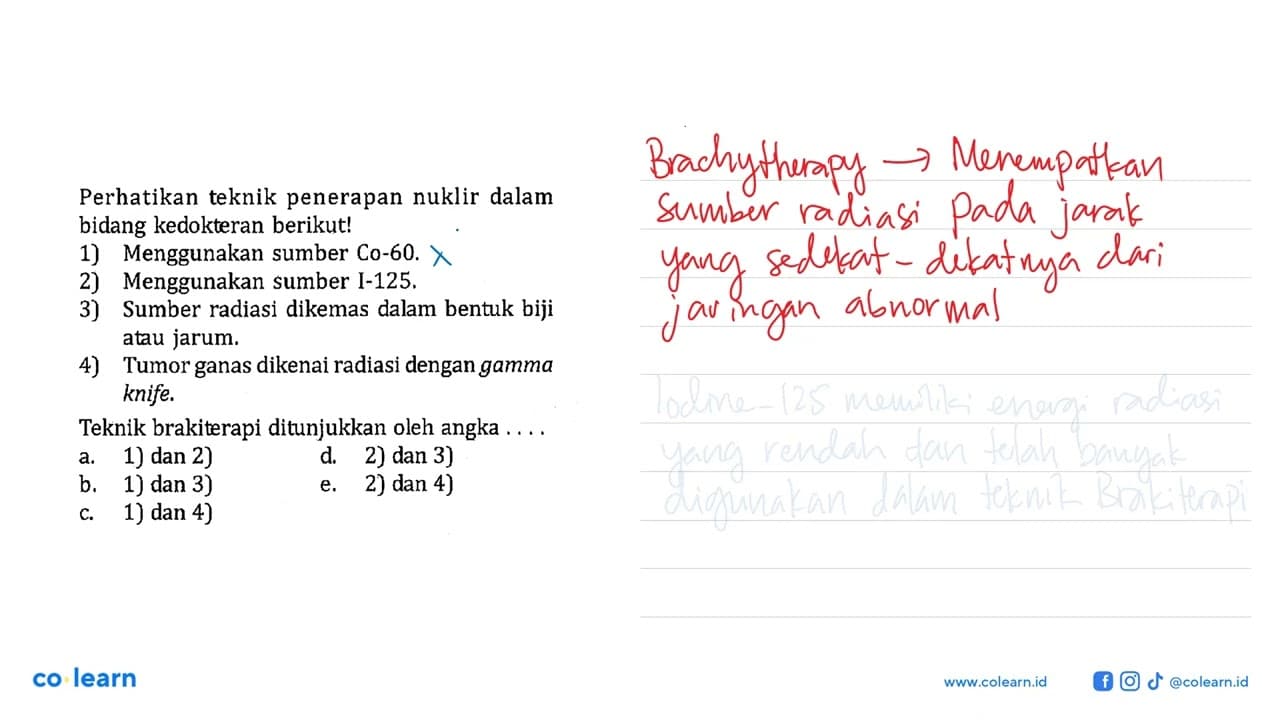 Perhatikan teknik penerapan nuklir dalam
bidang kedokteran berikut!
1) Menggunakan sumber Co-60.
2) Menggunakan sumber I-125.
3) Sumber radiasi dikemas dalam bentuk biji
atau jarum.
4) Tumor ganas dikenai radiasi dengan gamma
knife.
Teknik brakiterapi ditunjukkan oleh angka . . . .
a. 1) dan 2) d. 2) dan 3)
b. 1) dan 3) e. 2) dan 4)
c. 1) dan 4)
Brachytherapy → Menempatkan
sumber radiasi pada jarak
yang sedekat-dekatnya dari
jaringan abnormal
Iodine-125 memiliki energi radiasi
yang rendah dan telah banyak
digunakan dalam teknik Brakiterapi
co learn
www.colearn.id
@colearn.id